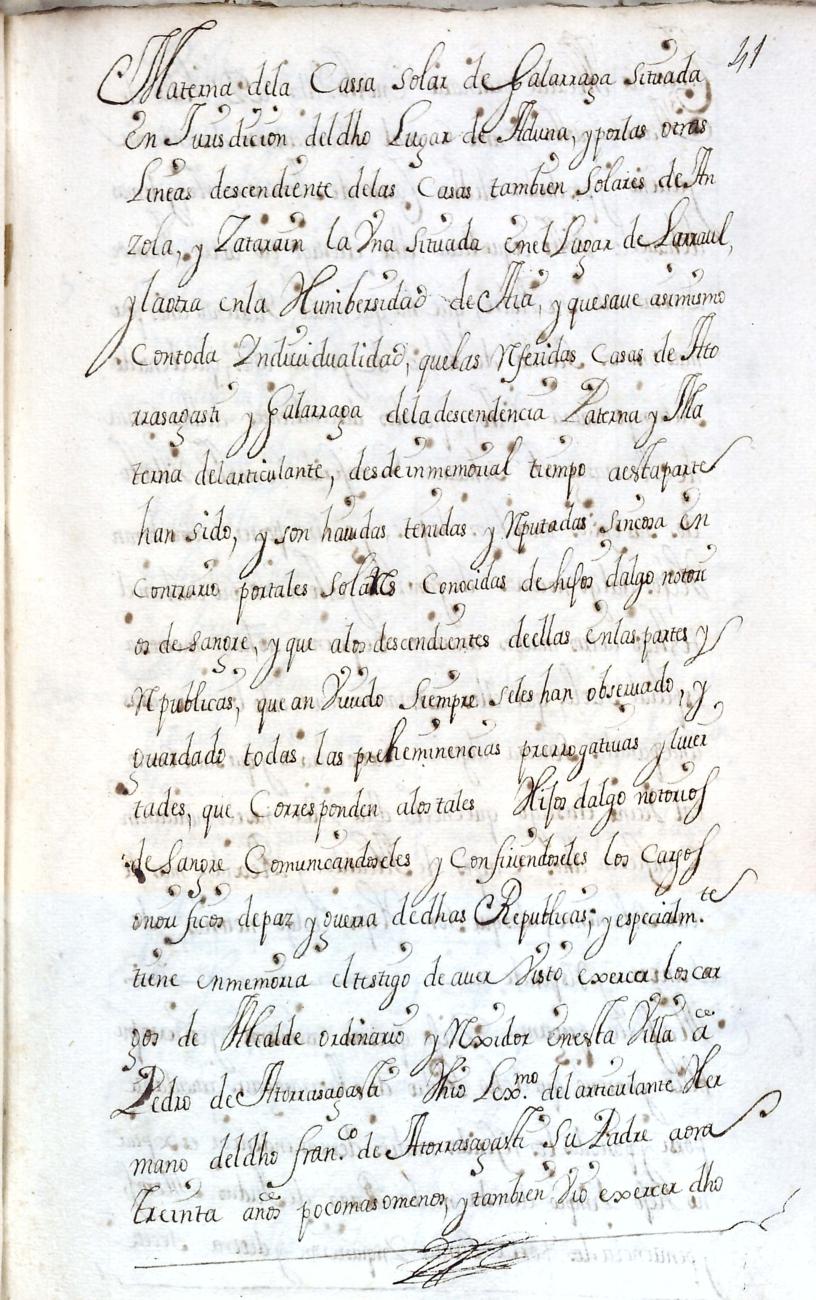 41
Materna dela Cassa Solar de Galarraga Situada
En Jurisdicion deldho Lugar de Aduna, y porlas otras
Lineas descendiente delas Casas tambien Solares de An
zola, y Zatarain la Vna Situada enel Lugar de Larraul,
y laotra enla Hunibersidad de Aia, y quesave asimismo
Contoda Yndiuidualidad, quelas Referidas Casas de Ato
rrasagasti y Galarraga deladescendencia Paterna y Ma
terna delarticulante, desdeinmemorial tiempo aestaparte
han sido, y son hauidas tenidas y Reputadas sincosa en
Contrario portales Solares Conocidas de hijos dalgo notori
os de Sangre, y que alos descendientes deellas enlas partes y
Republicas, que an Viuido Siempre seles han obseruado, y
guardado todas las preheminencias prerrogatiuas y liuer
tades, que Corresponden alos tales Hijos dalgo notorios
de Sangre Comunicandoseles y Confiriendoseles los Cargos
onorificos depaz y guerra dedhas Republicas; y especialm.te
tiene enmemoria eltestigo de auer Visto exercer los car
gos de Alcalde ordinario y Rexidor enesta Villa a
Pedro de Atorrasagasti thio Lex.mo delarticulante Her
mano deldho fran.co de Atorrasagasti Su Padre aora
treinta años pocomasomenos, y tambien Vio exercer dho